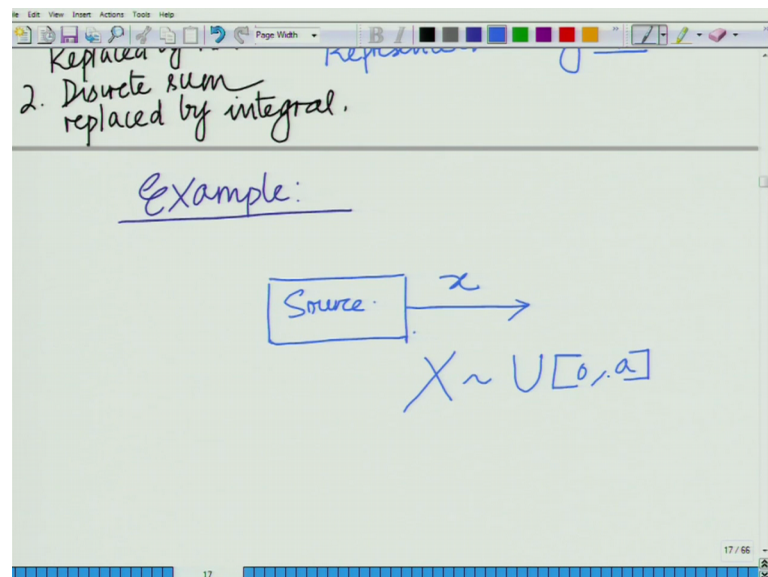 File Edit View Insert Actions Tools Help
Page Width
B I
Replaced by
2. Discrete sum
replaced by integral.
Example:
Source.
x
X ~ U[0, a]
17 / 66
17